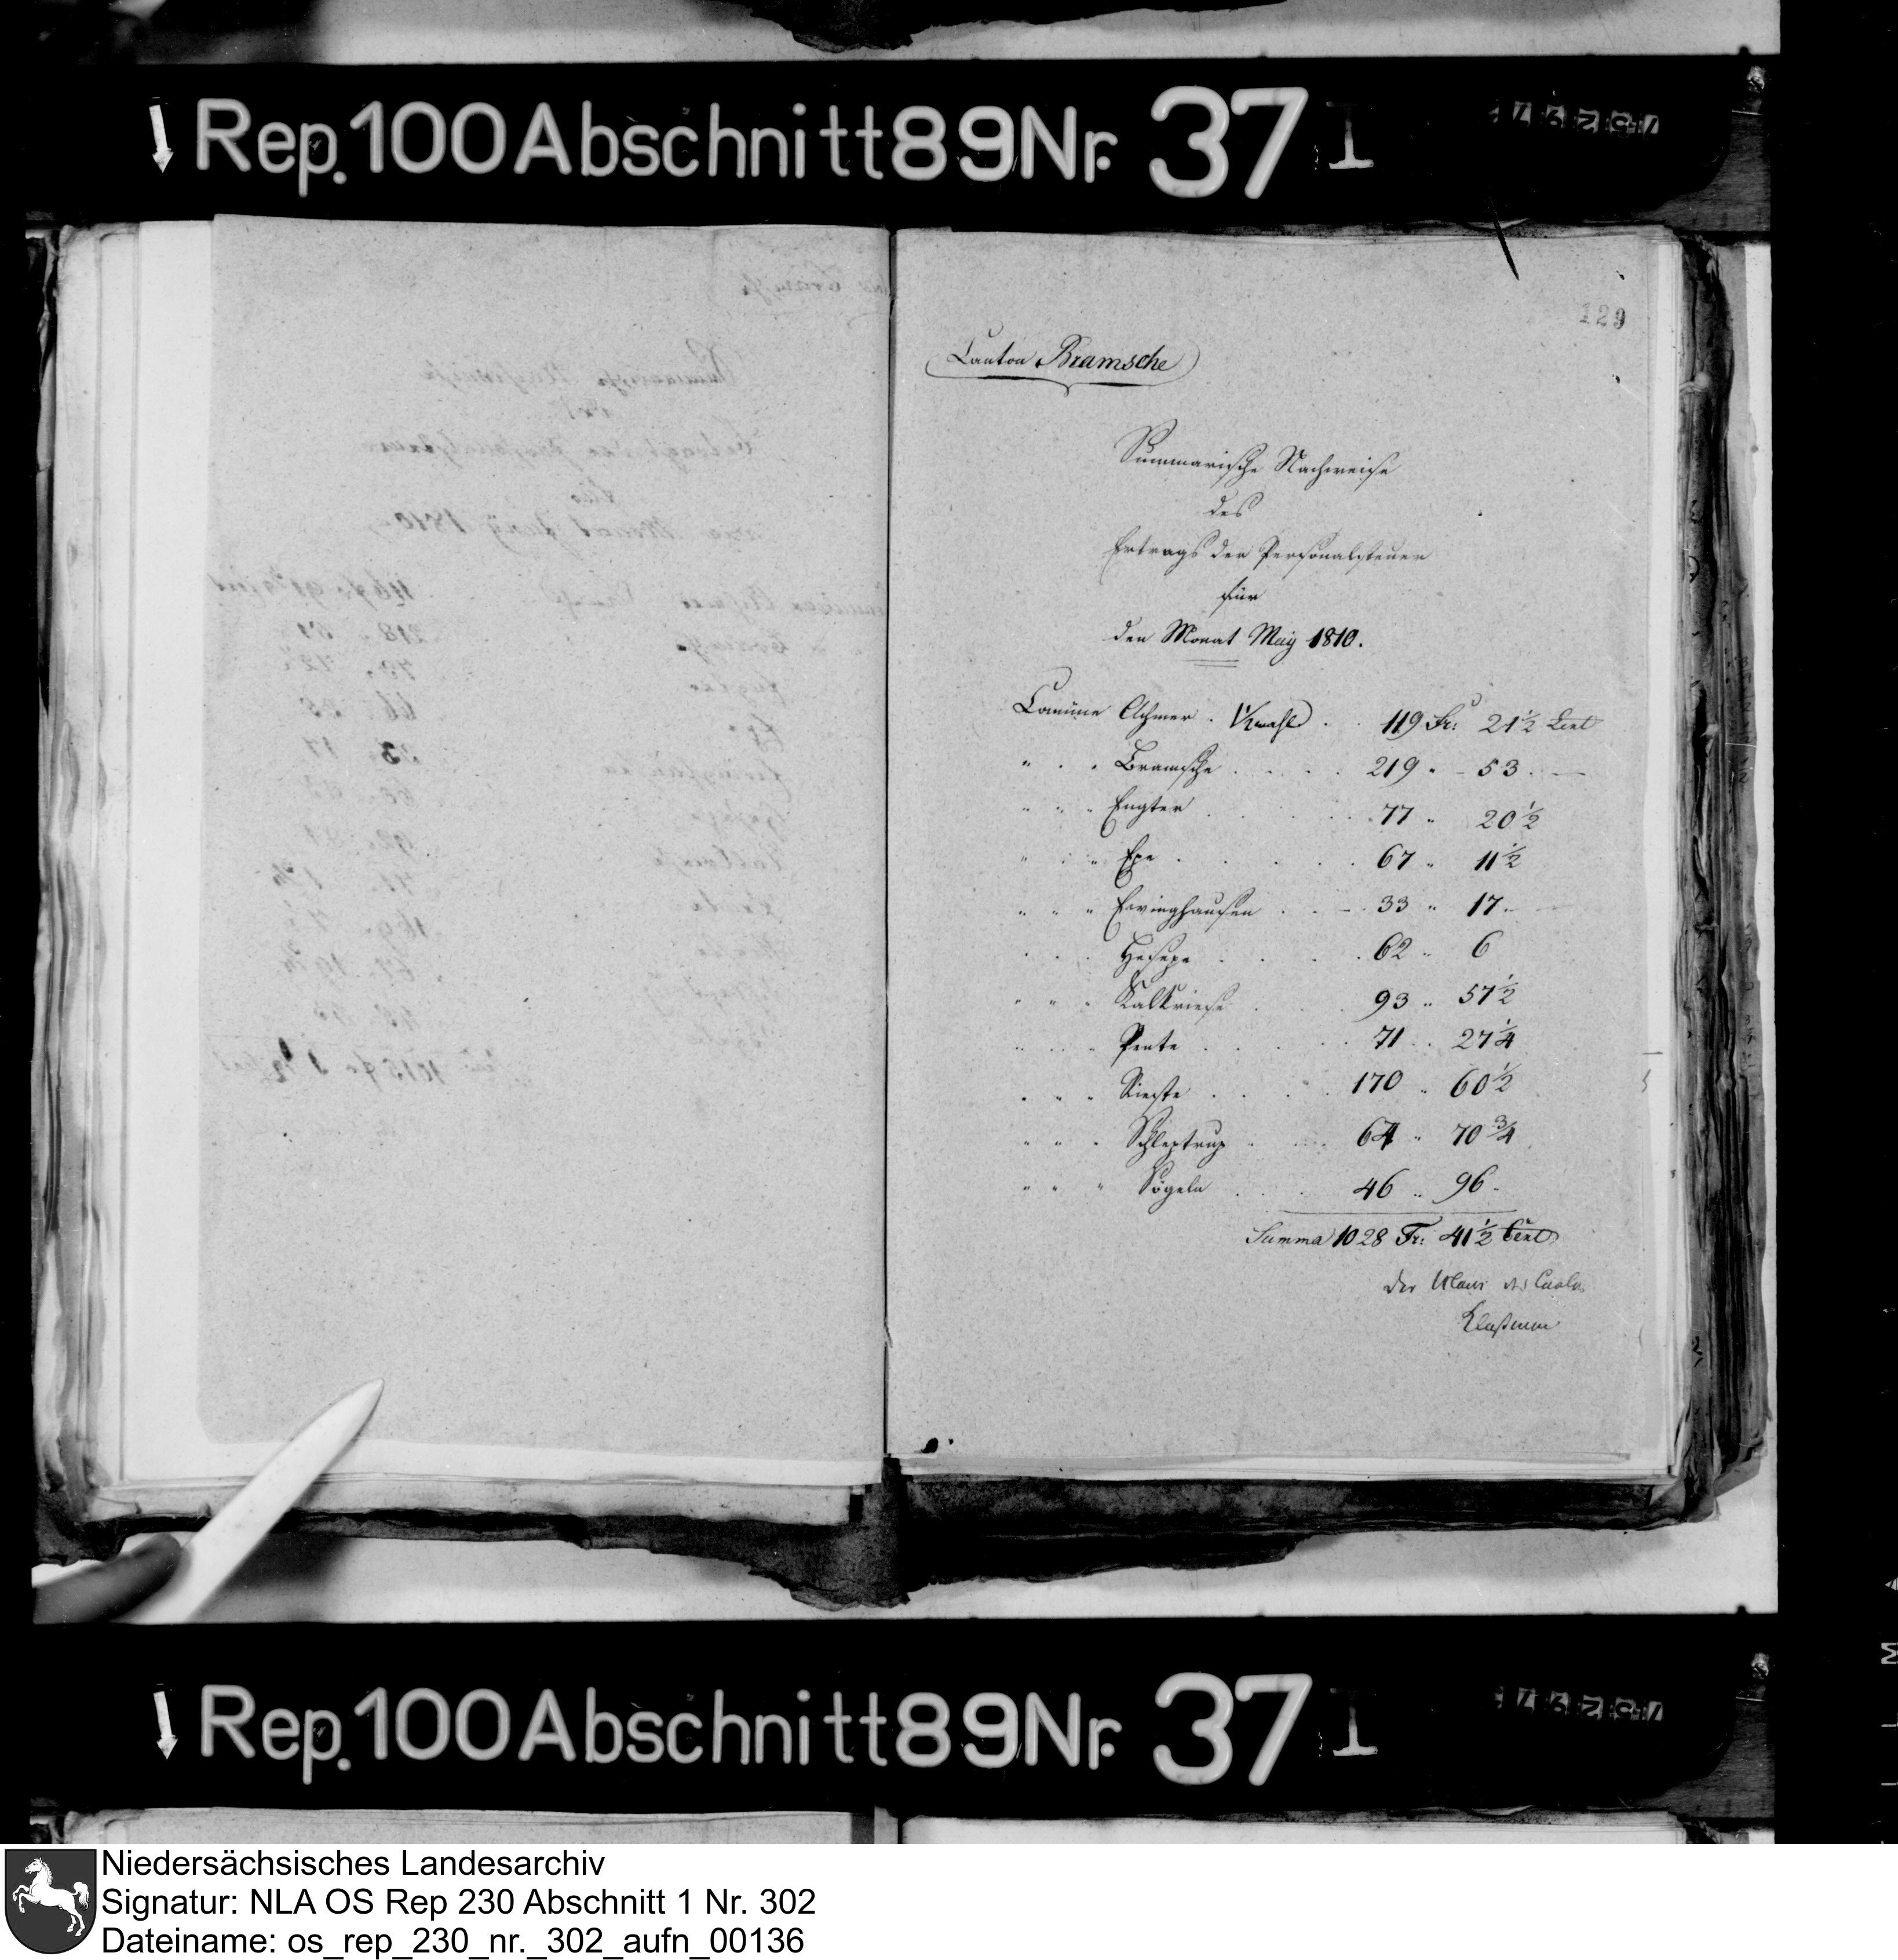 Rep. 100 Abschnitt 89 Nr. 37 I
129
Canton Bramsche
Summarische Nachweise
des
Ertrags der Personalsteuer
für
den Monat May 1810.
Comüne Achmer . . . 119 Fr: 21 1/2 Cent
" " Bramsche . . . . 219 " - 53. —
" " " Engter . . . . 77 " 20 1/2
" " " Epe . . . . . 67 " 11 1/2
" " " Evinghausen . . . 33 " 17. —
" " Hesepe . . . . 62 " 6
" " " Kalkriese . . . 93 " 57 1/2
" " " Pente . . . . 71 " 27 1/4
" " " Rieste . . . . 170 " 60 1/2
" " " Schleptrup . . . 64 " 70 3/4
" " " Sögeln . . . 46 " 96.
Summa 1028 Fr: 41 1/2 Cent
Der Maire des
Rep. 100 Abschnitt 89 Nr. 37 I
Niedersächsisches Landesarchiv
Signatur: NLA OS Rep 230 Abschnitt 1 Nr. 302
Dateiname: os_rep_230_nr._302_aufn_00136